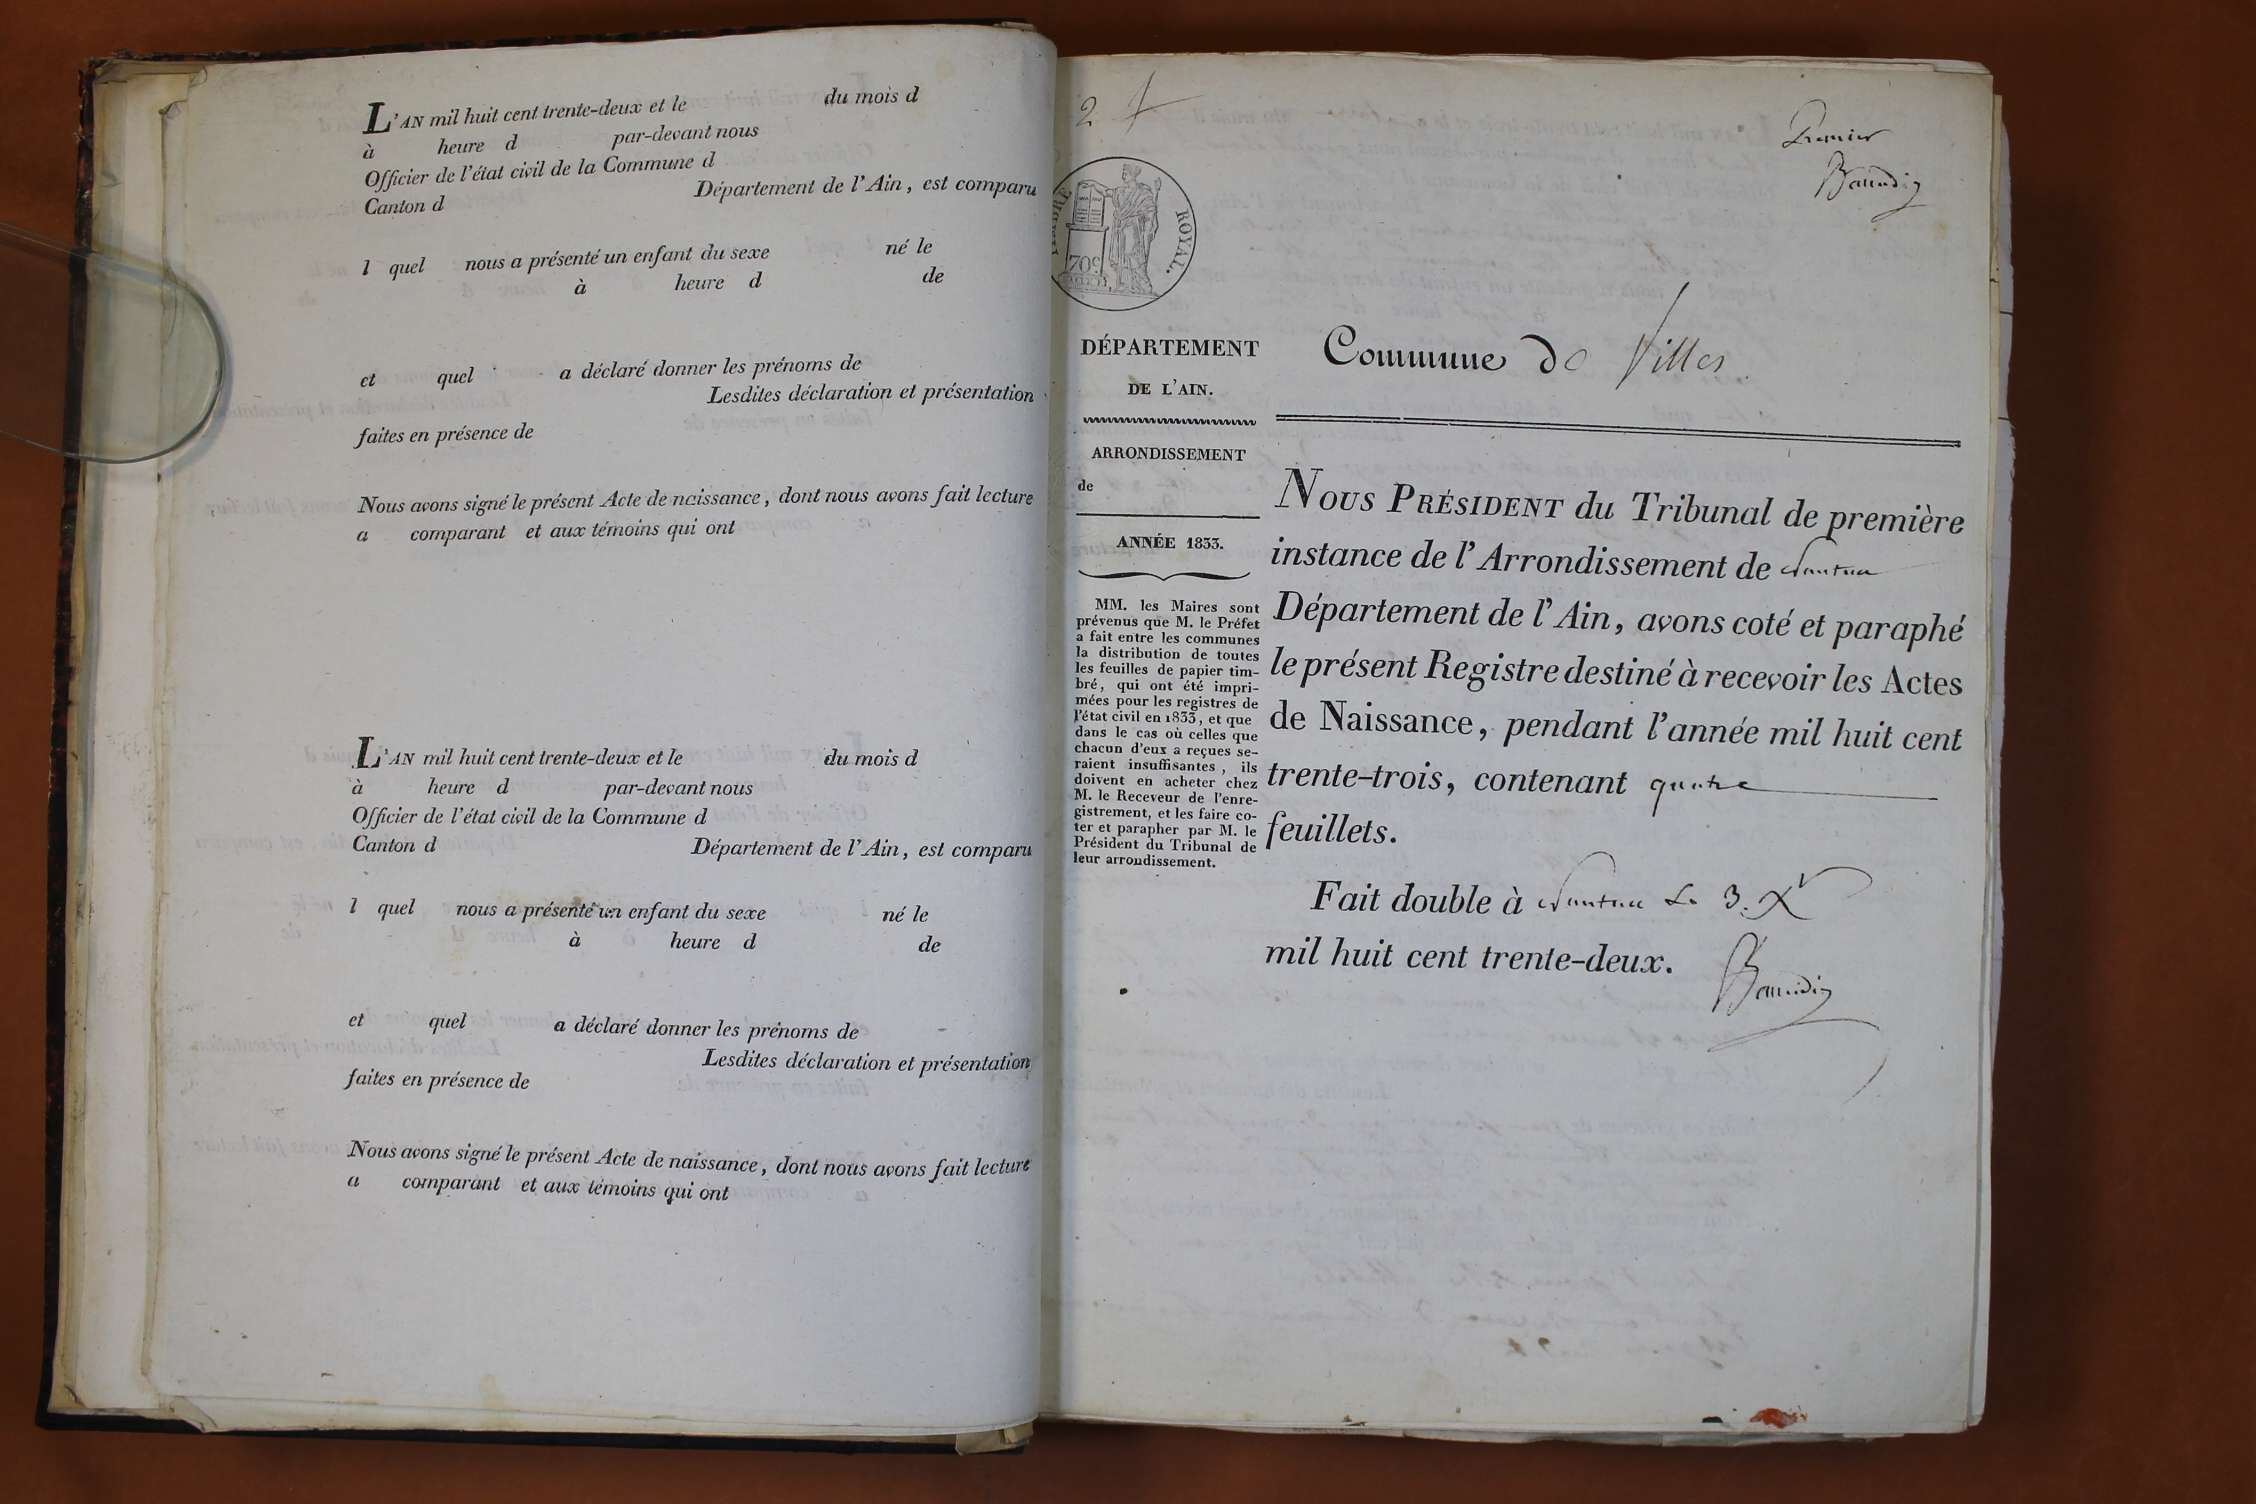 L'AN mil huit cent trente-deux et le du mois d
à heure d par-devant nous
Officier de l'état civil de la Commune d
Canton d Département de l'Ain, est comparu
l quel nous a présenté un enfant du sexe né le
à heure d de
et quel a déclaré donner les prénoms de
Lesdites déclaration et présentation
faites en présence de
Nous avons signé le présent Acte de naissance, dont nous avons fait lecture
a comparant et aux témoins qui ont
L'AN mil huit cent trente-deux et le du mois d
à heure d par-devant nous
Officier de l'état civil de la Commune d
Canton d Département de l'Ain, est comparu
l quel nous a présenté un enfant du sexe né le
à heure d de
et quel a déclaré donner les prénoms de
Lesdites déclaration et présentation
faites en présence de
Nous avons signé le présent Acte de naissance, dont nous avons fait lecture
a comparant et aux témoins qui ont
2
Premier
Baudin
TIMBRE ROYAL.
70c
DÉPARTEMENT
DE L'AIN.
ARRONDISSEMENT
de
ANNÉE 1833.
MM. les Maires sont
prévenus que M. le Préfet
a fait entre les communes
la distribution de toutes
les feuilles de papier tim-
bré, qui ont été impri-
mées pour les registres de
l'état civil en 1833, et que
dans le cas où celles que
chacun d'eux a reçues se-
raient insuffisantes, ils
doivent en acheter chez
M. le Receveur de l'enre-
gistrement, et les faire co-
ter et parapher par M. le
Président du Tribunal de
leur arrondissement.
Commune de Villes
NOUS PRÉSIDENT du Tribunal de première
instance de l'Arrondissement de Nantua
Département de l'Ain, avons coté et paraphé
le présent Registre destiné à recevoir les Actes
de Naissance, pendant l'année mil huit cent
trente-trois, contenant quatre
feuillets.
Fait double à Nantua le 3. Xr
mil huit cent trente-deux.
Baudin